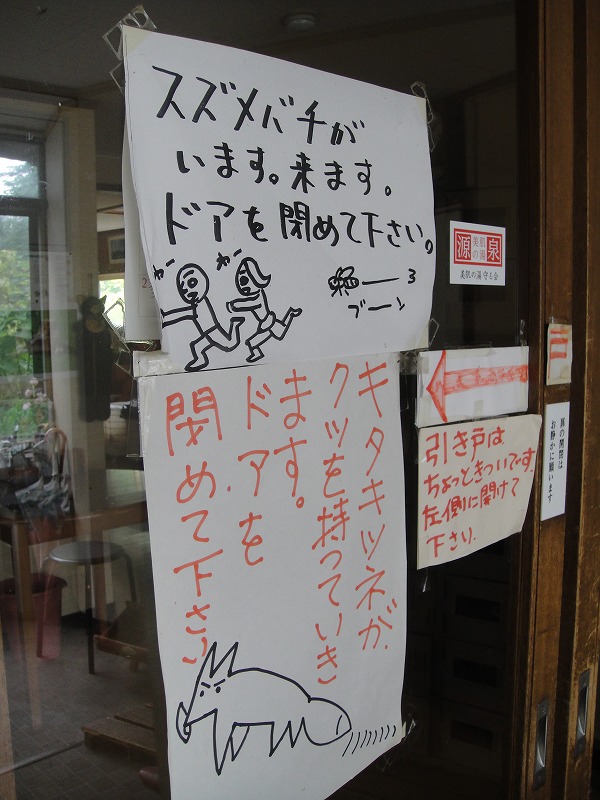 スズメバチが
います。来ます。
ドアを閉めて下さい。
ブーン
キタキツネが
クツを持っていき
ます。
ドアを
閉めて下さい
源泉
美肌の湯
美肌の湯守る会
引き戸は
ちょっときついです
左側に開けて
下さい.
扉の開閉は
お静かに願います